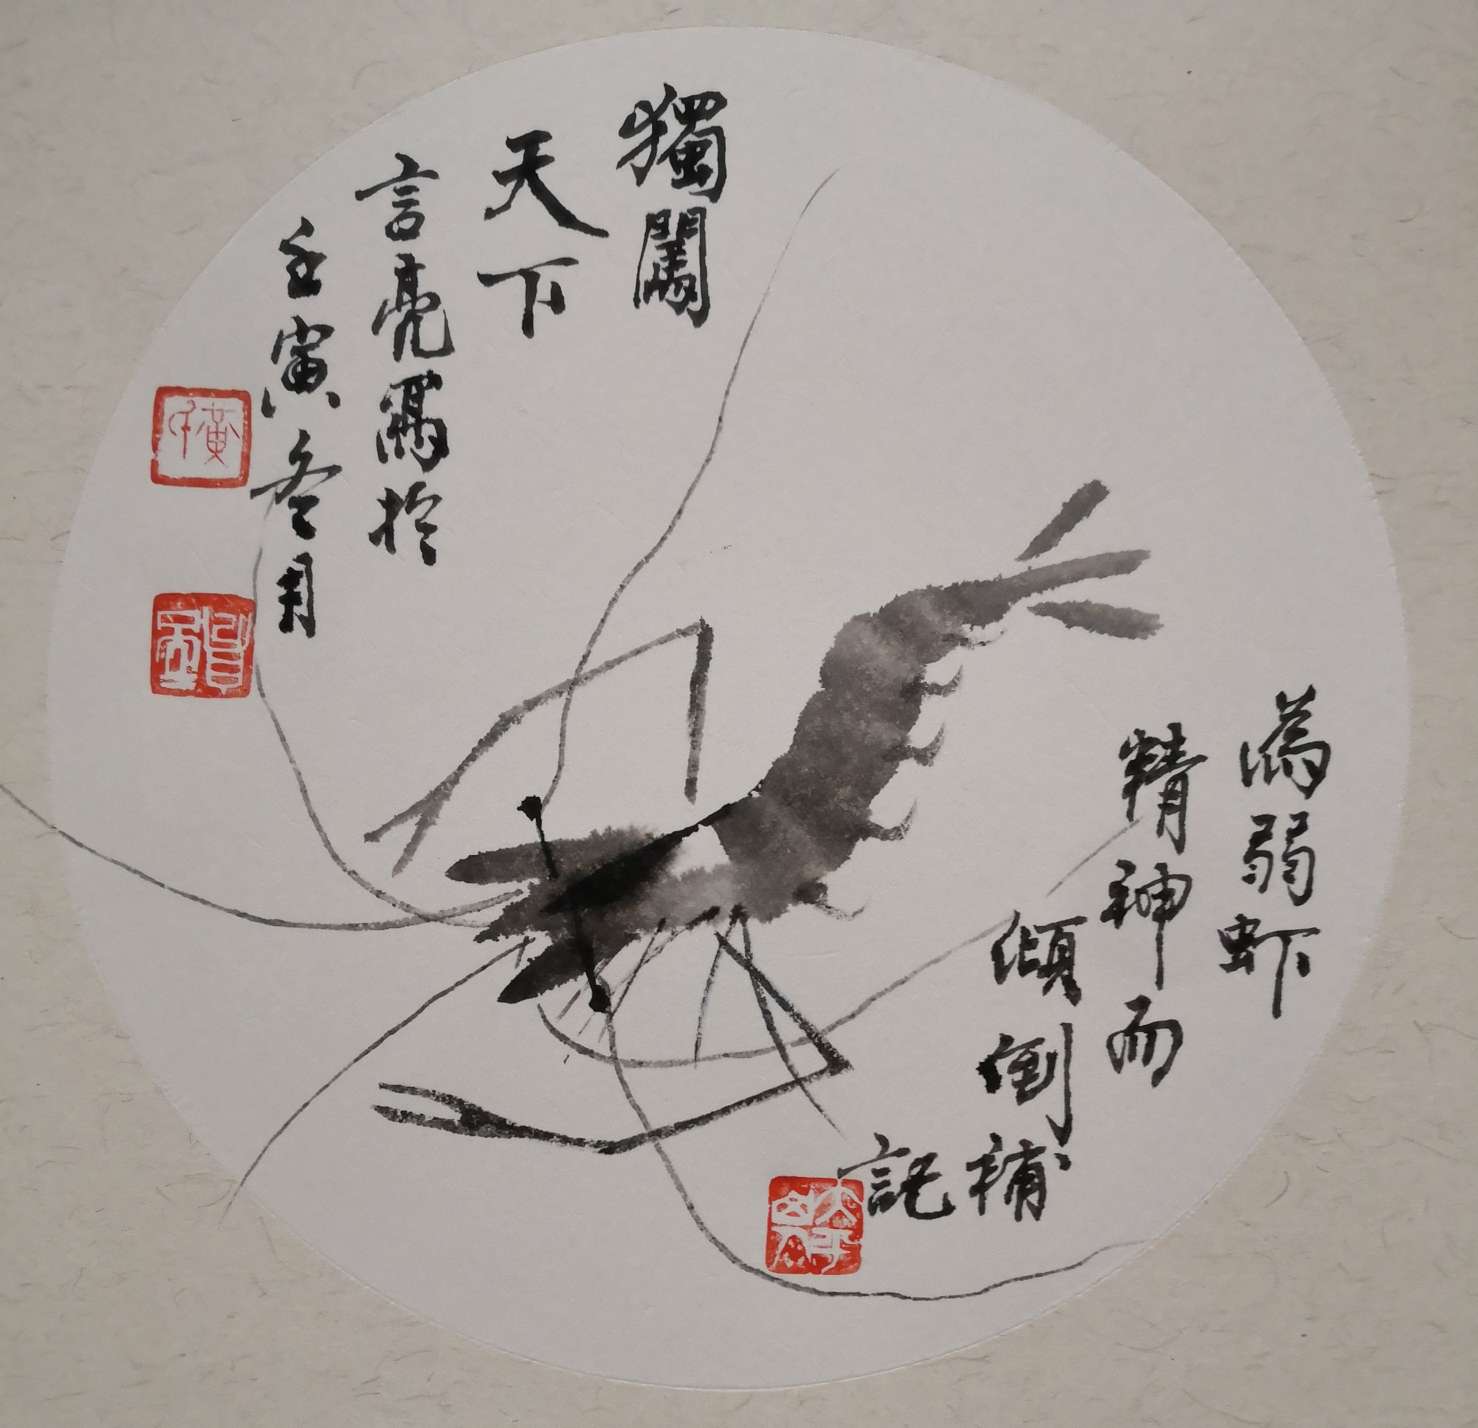 獨闖
天下
言亮寫於
壬寅冬月
為弱虾
精神而
傾倒補
記